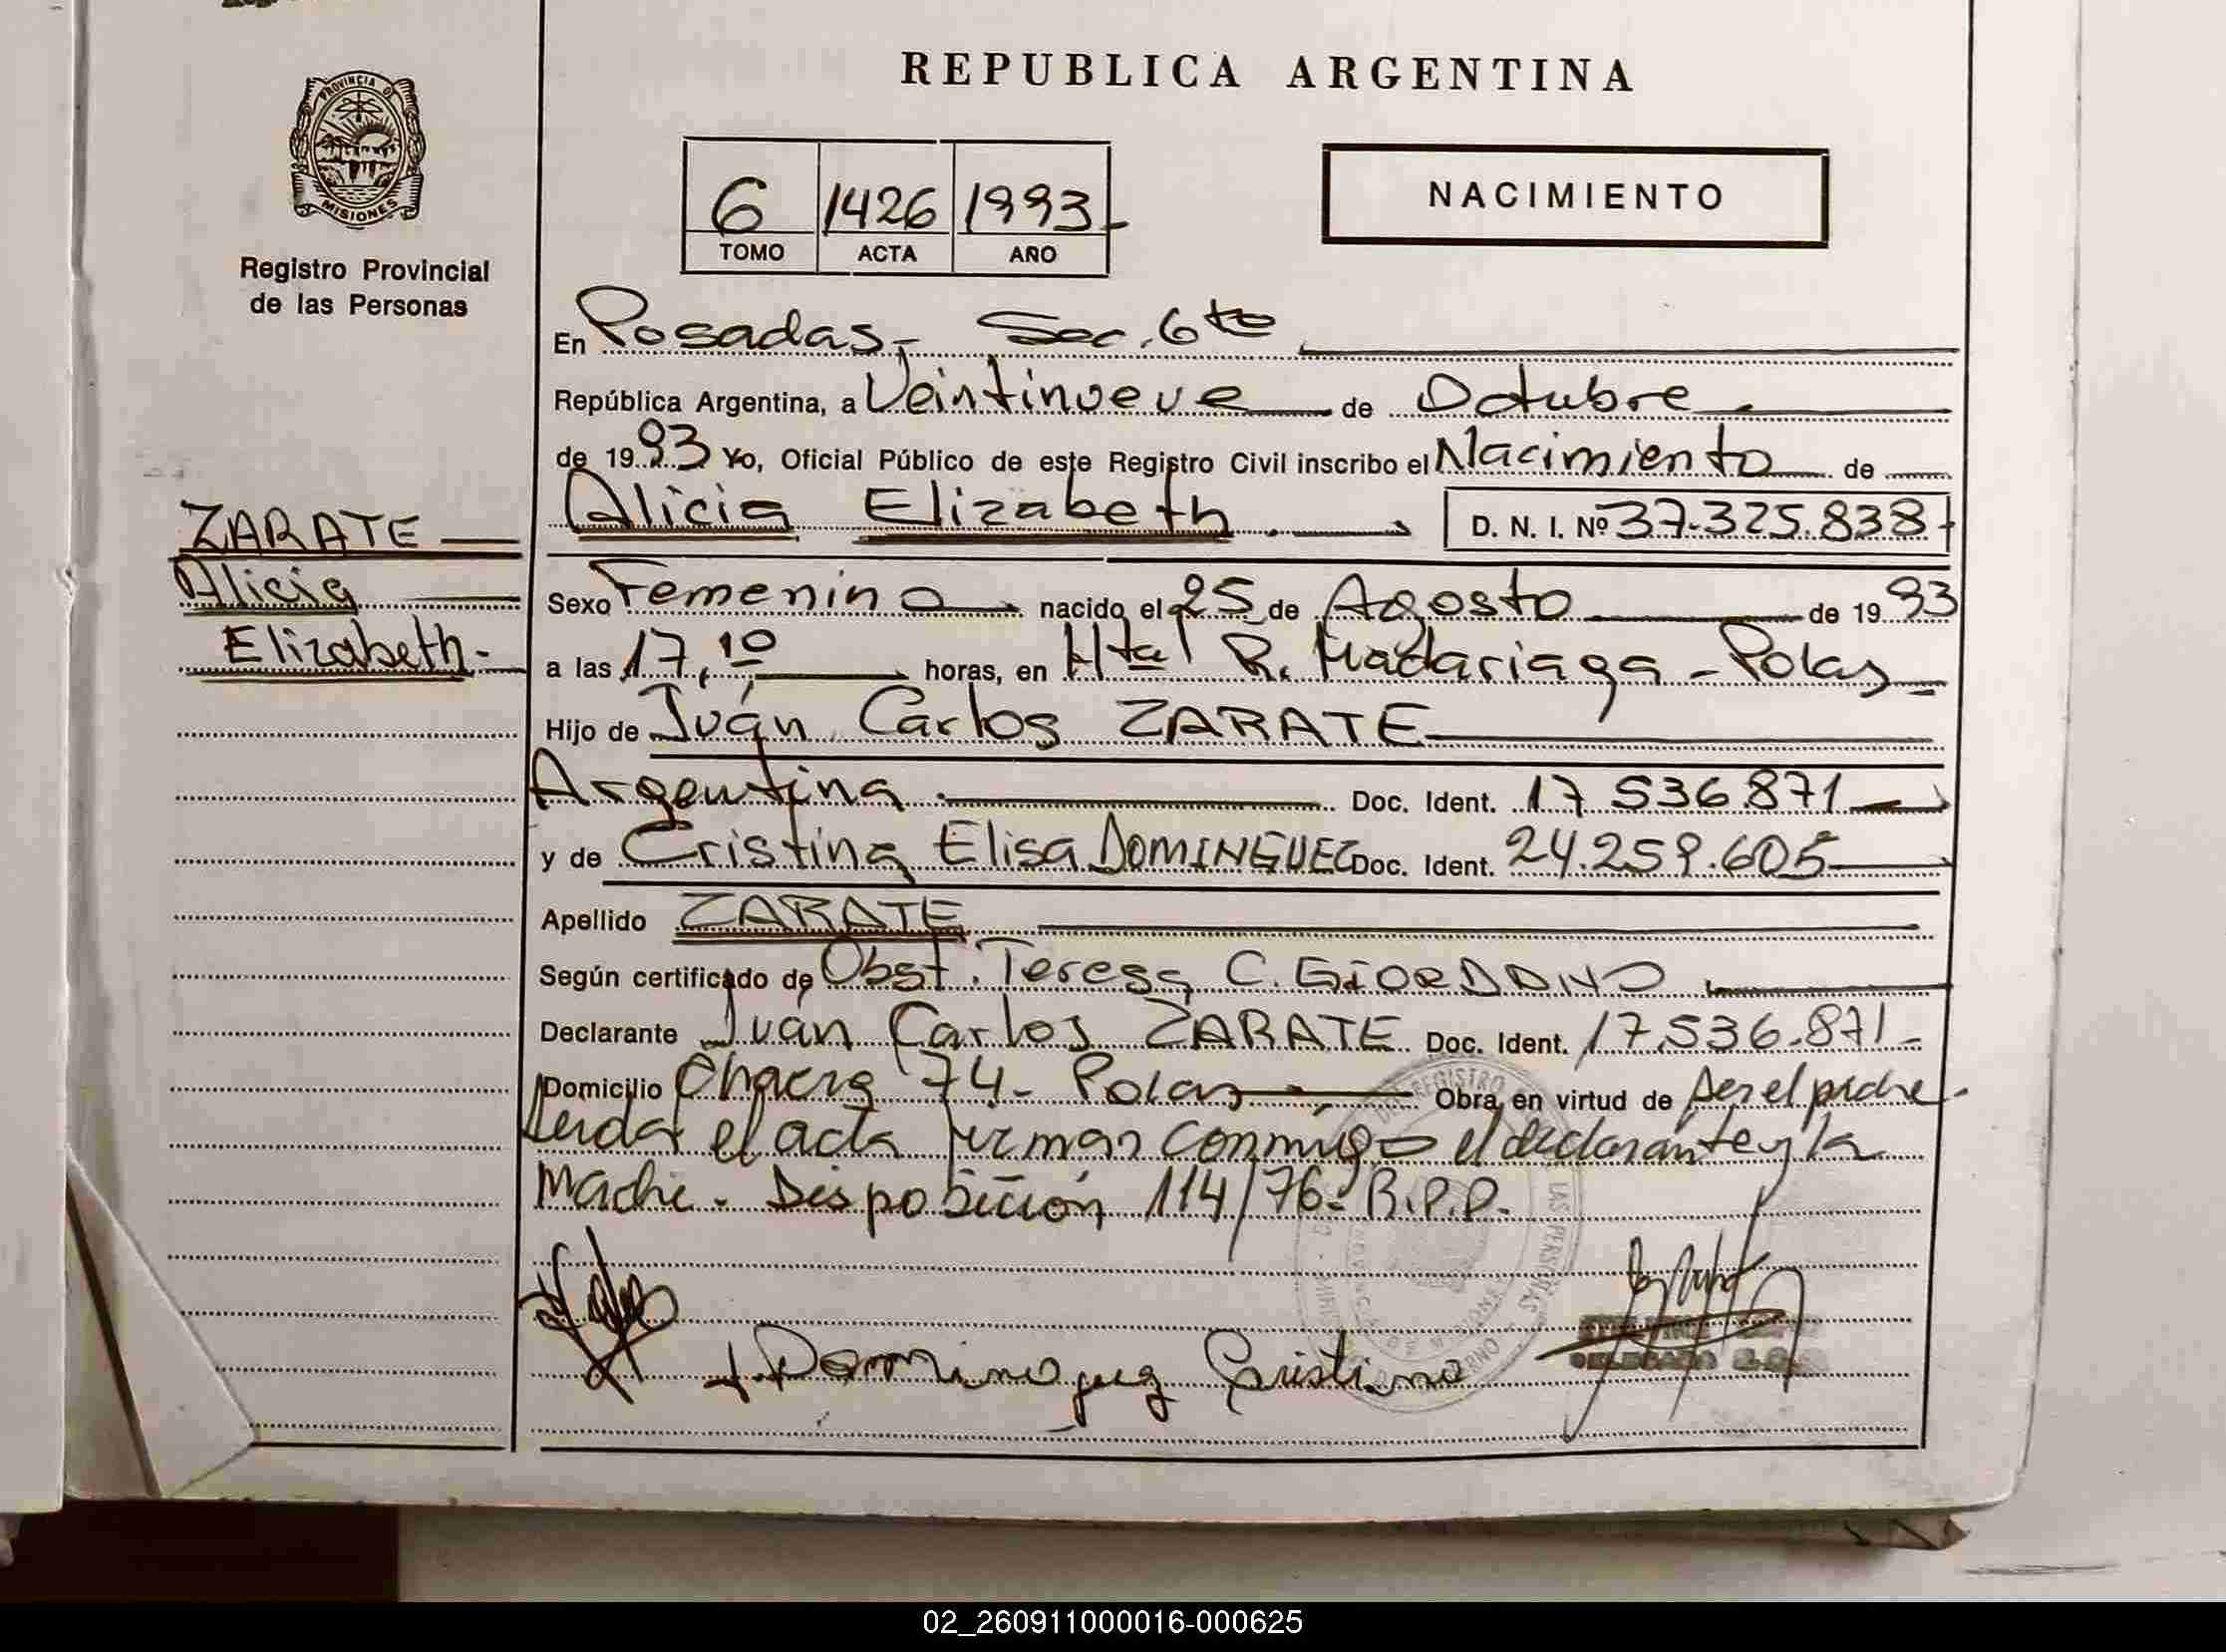 REPUBLICA ARGENTINA
PROVINCIA D
MISIONES
Registro Provincial
de las Personas
6 1426 1993-
TOMO ACTA AÑO
NACIMIENTO
En Posadas, - Sec. 6ta
República Argentina, a Veintinueve de Octubre
de 1993 Yo, Oficial Público de este Registro Civil inscribo el Nacimiento de
Alicia Elizabeth D. N. I. Nº 37.325.838-
ZARATE
Alicia
Elizabeth.-
Sexo Femenino nacido el 25 de Agosto de 1993
a las 17,10 horas, en Htal R. Madariaga - Pdas
Hijo de Juán Carlos ZARATE
Argentina Doc. Ident. 17 536.871
y de Cristina Elisa DOMINGUEZ Doc. Ident. 24.259.605
Apellido ZARATE
Según certificado de Obst. Teresa C. GIORDANO
Declarante Juán Carlos ZARATE Doc. Ident. 17.536.871-
Domicilio Chacra 74- Pdas Obra en virtud de ser el padre-
Leida el acta firman conmigo el declarante y la
Madre. Disposición 114/76- R.P.P.
Dominguez Cristina
02_260911000016-000625